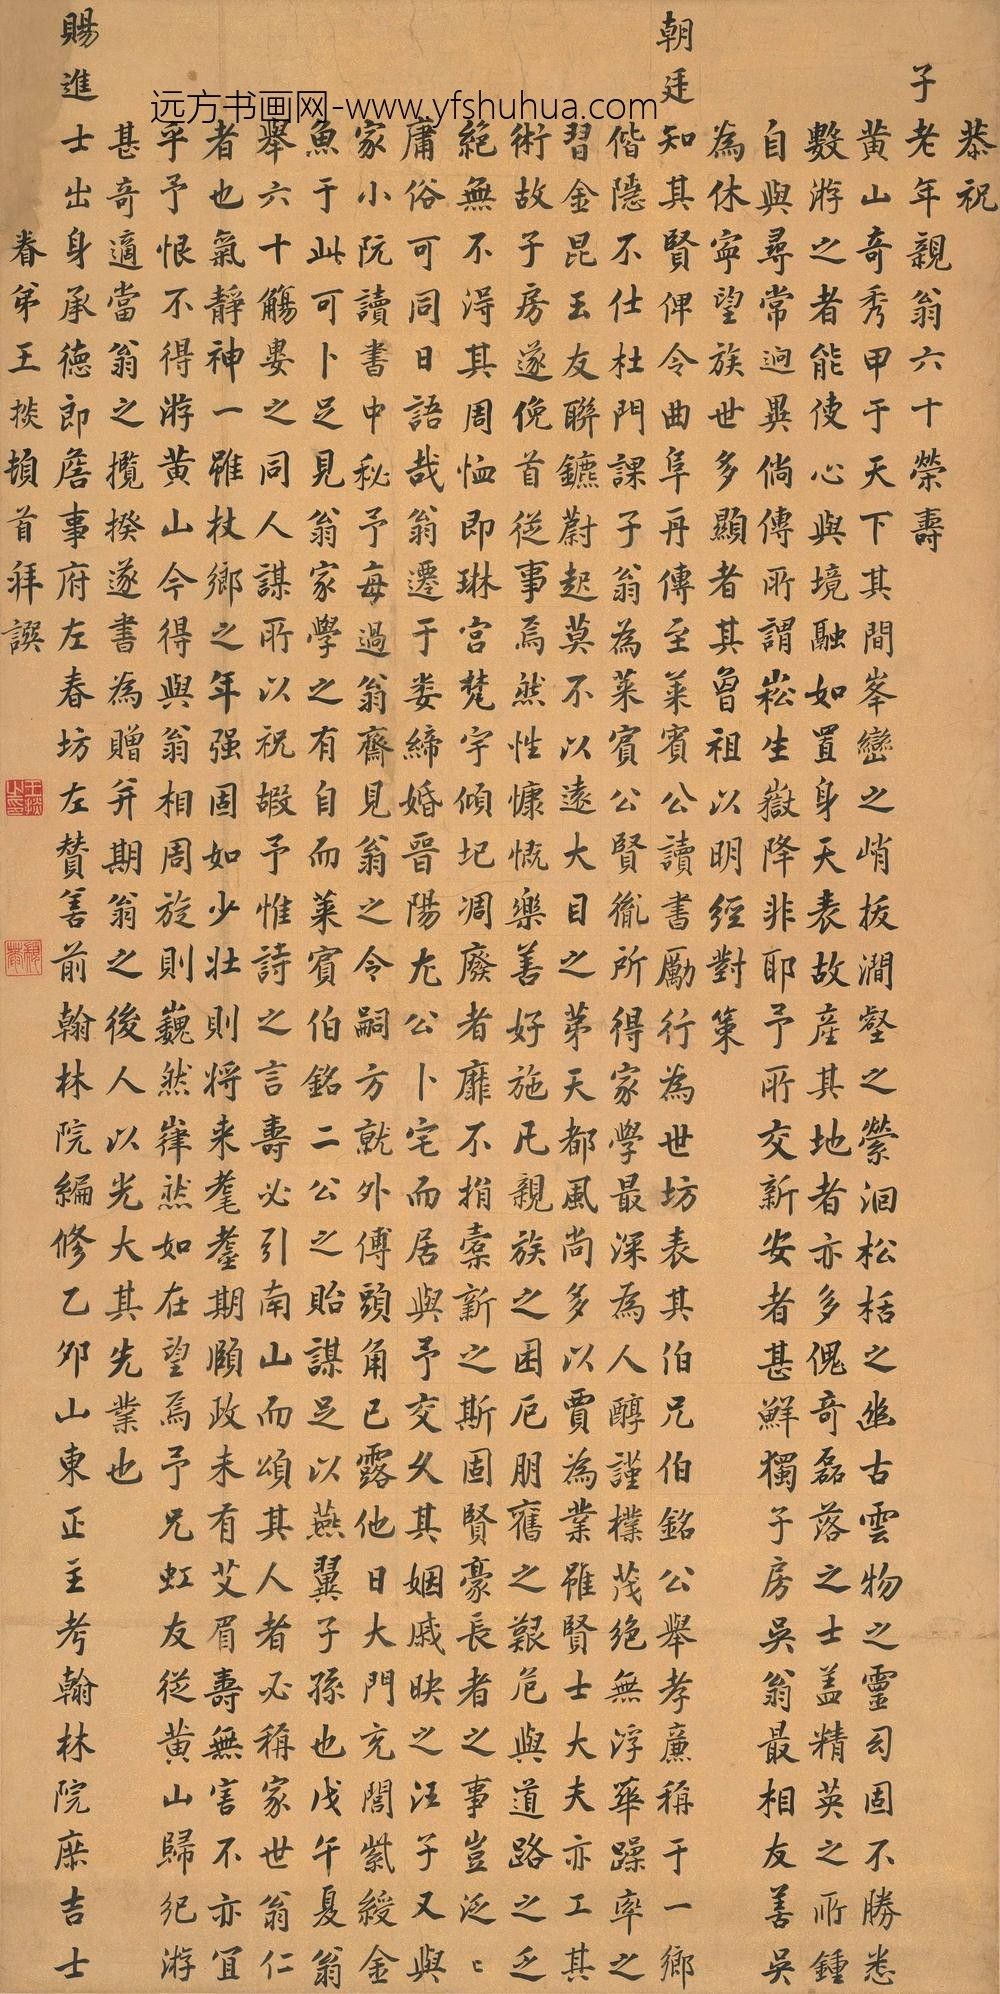 远方书画网-www.yfshuhua.com
恭祝
子老年親翁六十榮壽
黃山奇秀甲于天下其間峯巒之峭拔澗壑之縈洄松栝之幽古雲物之靈幻固不勝悉
數游之者能使心與境融如置身天表故產其地者亦多傀奇磊落之士盖精英之所鍾
自與尋常迥異倘傳所謂崧生嶽降非耶予所交新安者甚鮮獨子房吳翁最相友善吳
為休寧望族世多顯者其曾祖以明經對策
朝廷知其賢俾令曲阜再傳至萊賓公讀書勵行為世坊表其伯兄伯銘公舉孝廉稱于一鄉
偕隱不仕杜門課子翁為萊賓公賢胤所得家學最深為人醇謹樸茂絕無浮華躁率之
習金昆玉友聯鑣蔚起莫不以遠大目之第天都風尚多以賈為業雖賢士大夫亦工其
術故子房遂俛首從事焉然性慷慨樂善好施凡親族之困厄朋舊之艱危與道路之乏
絕無不得其周恤即琳宮梵宇傾圮凋廢者靡不捐槖新之斯固賢豪長者之事豈泛〻
庸俗可同日語哉翁遷于婁締婚晉陽尤公卜宅而居與予交久其姻戚映之汪子又與
家小阮讀書中秘予每過翁齋見翁之令嗣方就外傅頭角已露他日大門充閭紫綬金
魚于此可卜足見翁家學之有自而萊賓伯銘二公之貽謀足以燕翼子孫也戊午夏翁
舉六十觴婁之同人謀所以祝嘏予惟詩之言壽必引南山而頌其人者必稱家世翁仁
者也氣靜神一雖杖鄉之年强固如少壯則將来耄耋期頤政未有艾眉壽無害不亦宜
乎予恨不得游黃山今得與翁相周旋則巍然嵂然如在望焉予兄虹友從黃山歸紀游
甚奇適當翁之攬揆遂書為贈并期翁之後人以光大其先業也
賜進士出身承德郎詹事府左春坊左贊善前翰林院編修乙卯山東正主考翰林院庶吉士
眷弟王掞頓首拜譔